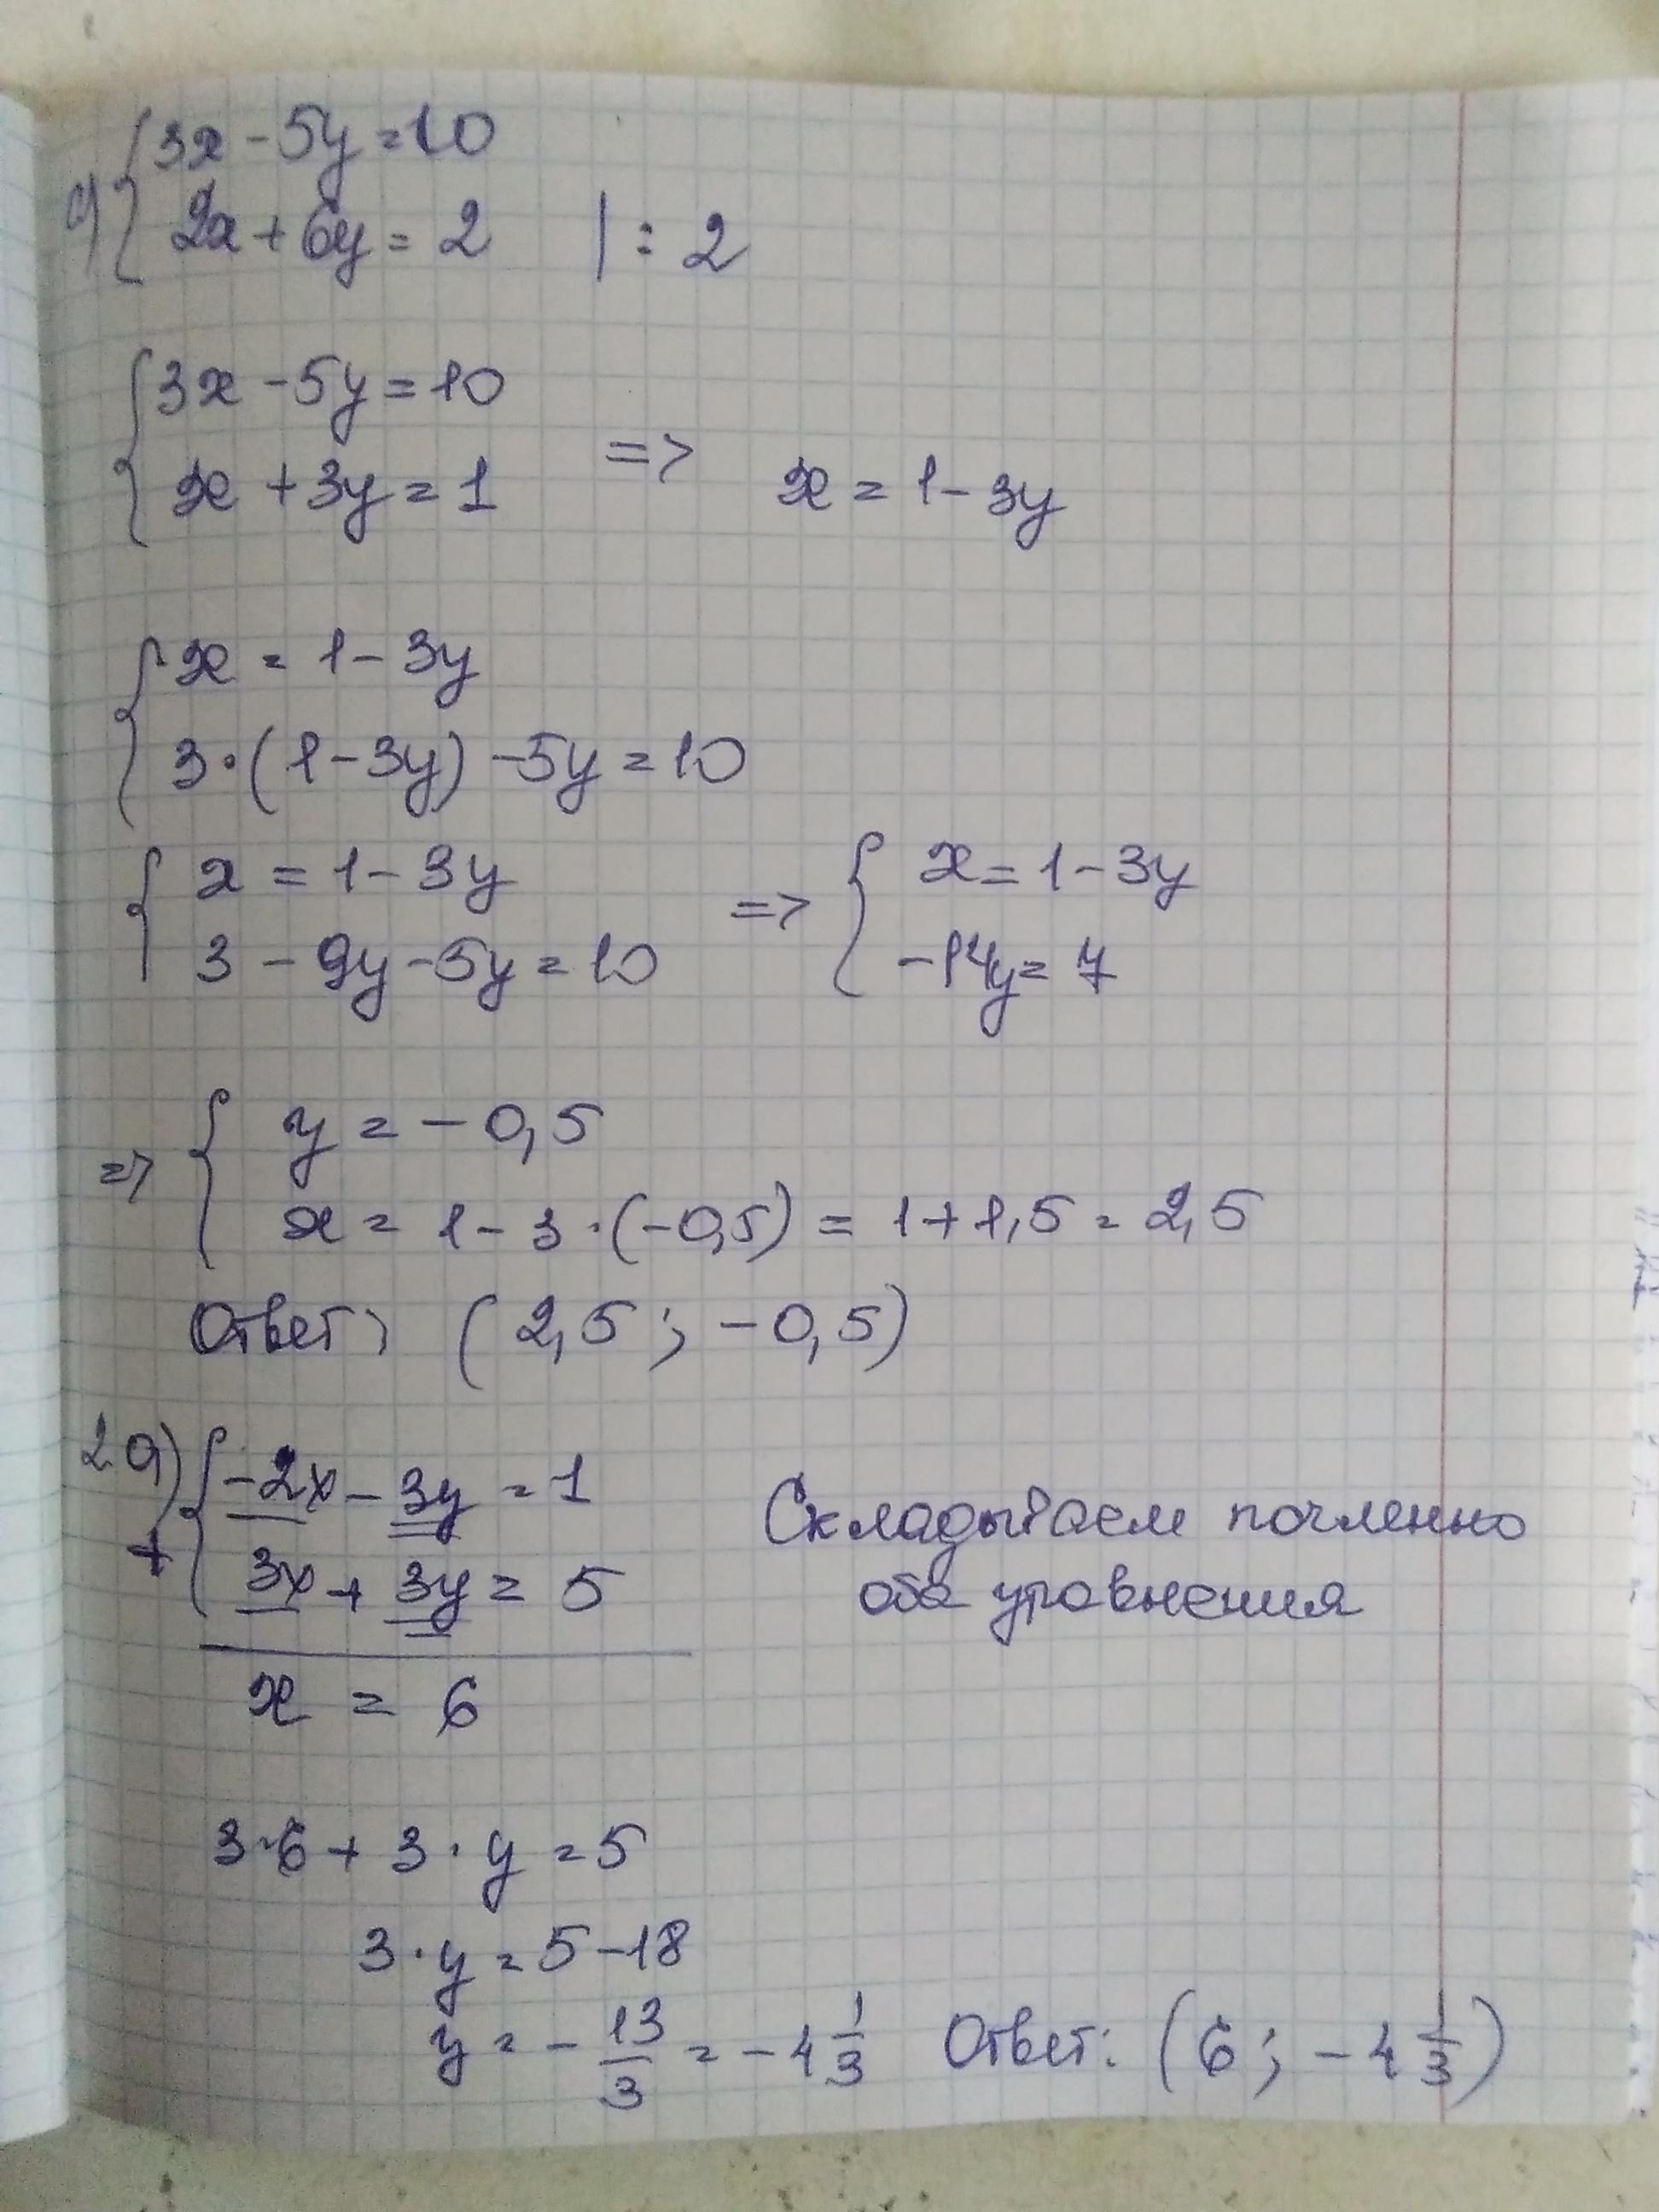 а) { 3x - 5y = 10
2x + 6y = 2 | : 2
{ 3x - 5y = 10
x + 3y = 1 => x = 1 - 3y
{ x = 1 - 3y
3·(1 - 3y) - 5y = 10
{ x = 1 - 3y => { x = 1 - 3y
3 - 9y - 5y = 10 -14y = 7
=> { y = -0,5
x = 1 - 3·(-0,5) = 1 + 1,5 = 2,5
Ответ: (2,5; -0,5)
2а) { -2x - 3y = 1 Складываем почленно
+ 3x + 3y = 5 оба уравнения
x = 6
3·6 + 3·y = 5
3·y = 5 - 18
y = - 13/3 = -4 1/3 Ответ: (6; -4 1/3)